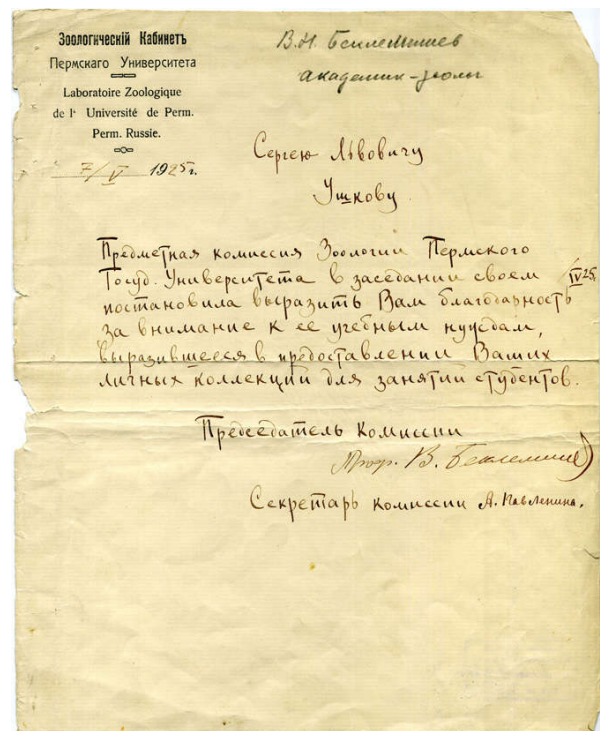 Зоологическій Кабинетъ
Пермскаго Университета
Laboratoire Zoologique
de l' Université de Perm.
Perm. Russie.
7/V 1925 г.
В.Н. Беклемишев
академик-зоолог
Сергею Львовичу
Ушкову.
Предметная комиссия Зоологии Пермского
Госуд. Университета в заседании своем /IV 25.
постановила выразить Вам благодарность
за внимание к ее учебным нуждам,
выразившееся в предоставлении Ваших
личных коллекций для занятий студентов.
Председатель Комиссии
Проф. В. Беклемишев
Секретарь комиссии А. Павленина.